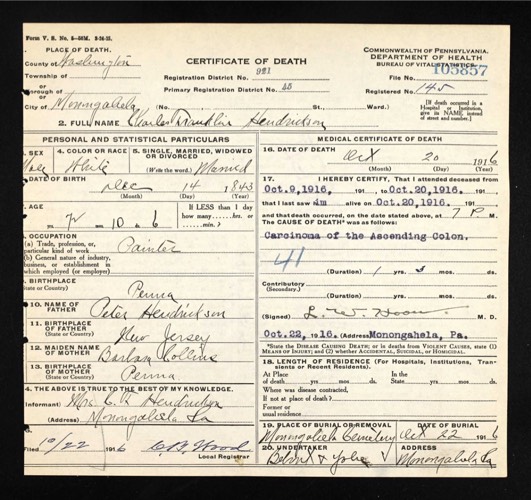 Form V. S. No. 5
PLACE OF DEATH.
County of Washington
Township of
or
Borough of
or
City of Monongahela
CERTIFICATE OF DEATH
Registration District No. 921
Primary Registration District No.
(No. St.; Ward.)
COMMONWEALTH OF PENNSYLVANIA.
DEPARTMENT OF HEALTH
BUREAU OF VITAL STATISTICS
File No. 105857
Registered No. 145
[If death occurred in a Hospital or Institution, give its NAME instead of street and number.]
2. FULL NAME Charles Franklin Hendrickson
PERSONAL AND STATISTICAL PARTICULARS
SEX
4. COLOR OR RACE White
5. SINGLE, MARRIED, WIDOWED or DIVORCED (Write the word.) Married
DATE OF BIRTH
Dec 14 1843
(Month) (Day) (Year)
7. AGE
72 10 6
If LESS than 1 day how many....hrs. or ....min.?
OCCUPATION
(a) Trade, profession, or, particular kind of work Painter
(b) General nature of industry, business, or establishment in which employed (or employer)
BIRTHPLACE
(State or Country) Penna
10. NAME OF FATHER Peter Hendrickson
11. BIRTHPLACE OF FATHER
(State or Country) New Jersey
12. MAIDEN NAME OF MOTHER Barbara Collins
13. BIRTHPLACE OF MOTHER
(State or Country) Penna
4. THE ABOVE IS TRUE TO THE BEST OF MY KNOWLEDGE.
Informant Mrs. C. F. Hendrickson
(Address) Monongahela Pa
Filed 10/22 1916 C. B. Wood
Local Registrar
MEDICAL CERTIFICATE OF DEATH
16. DATE OF DEATH
Oct 20 1916
(Month) (Day) (Year)
17. I HEREBY CERTIFY, That I attended deceased from
Oct.9,1916, 191 , to Oct.20,1916, 191 ,
that I last saw him alive on Oct.20,1916, 191 ,
and that death occurred, on the date stated above, at 7 P. M.
The CAUSE OF DEATH* was as follows:
Carcinoma of the Ascending Colon.
41
(Duration) 1 yrs. 3 mos. ds.
Contributory
(Secondary)
(Duration) yrs. mos. ds.
(Signed) L. W. M. D.
Oct.22, 1916. (Address) Monongahela, Pa.
*State the DISEASE CAUSING DEATH; or in deaths from VIOLENT CAUSES, state (1) MEANS OF INJURY; and (2) whether ACCIDENTAL, SUICIDAL, or HOMICIDAL.
18. LENGTH OF RESIDENCE (For Hospitals, Institutions, Transients or Recent Residents).
At Place of death yrs. mos. ds. In the State yrs. mos. ds.
Where was disease contracted,
if not at place of death?
Former or
usual residence
19. PLACE OF BURIAL OR REMOVAL Monongahela Cemetery
DATE OF BURIAL Oct 22 1916
20. UNDERTAKER
ADDRESS Monongahela Pa